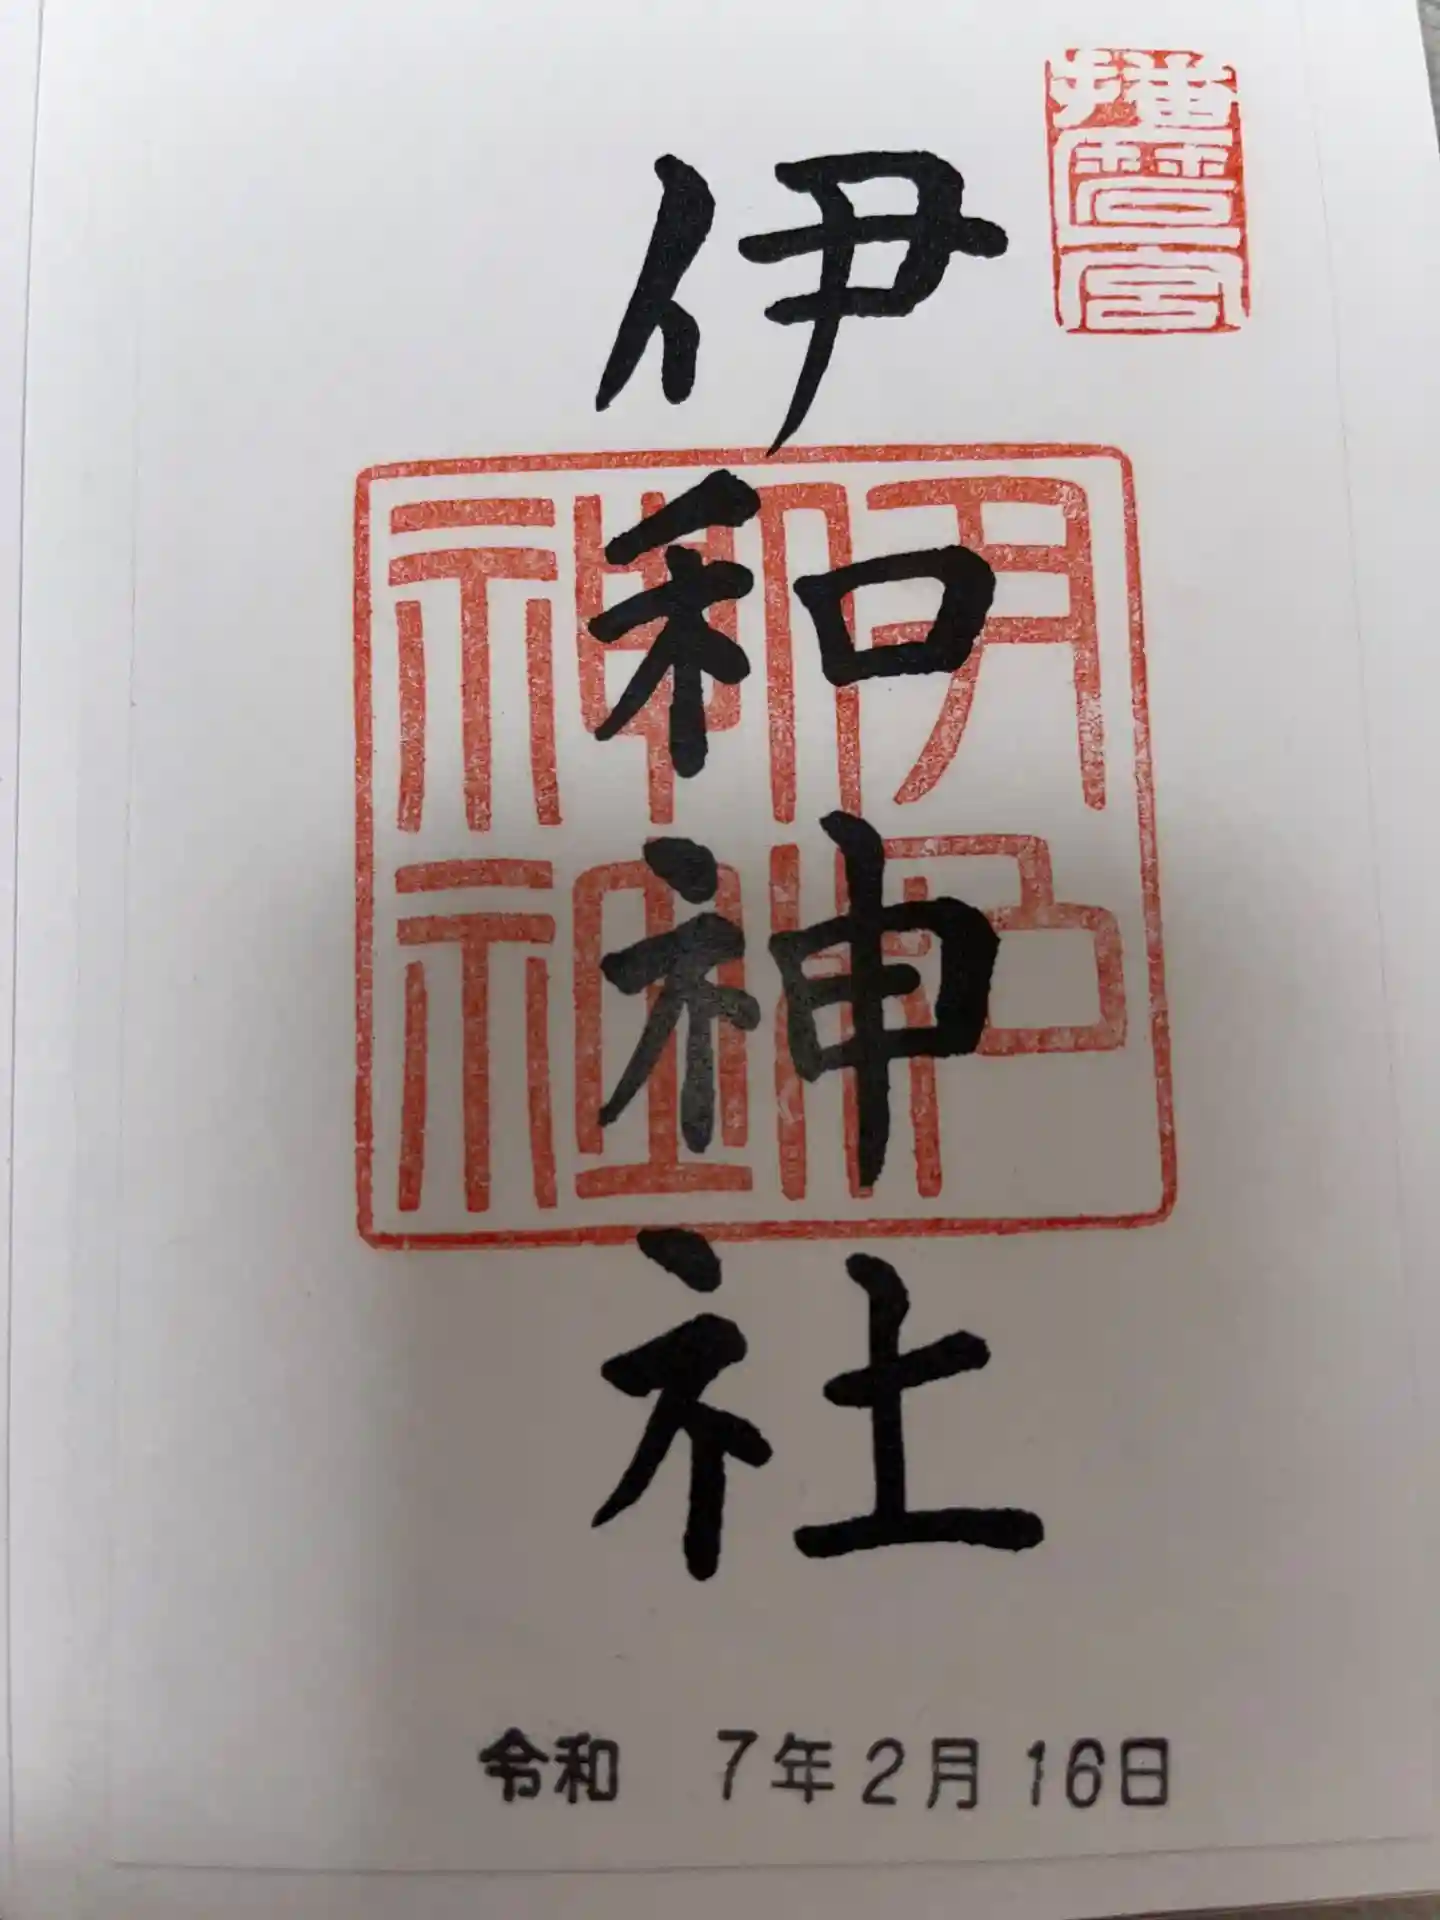 播磨一宮
伊和神社
伊和神社
令和 7年2月16日